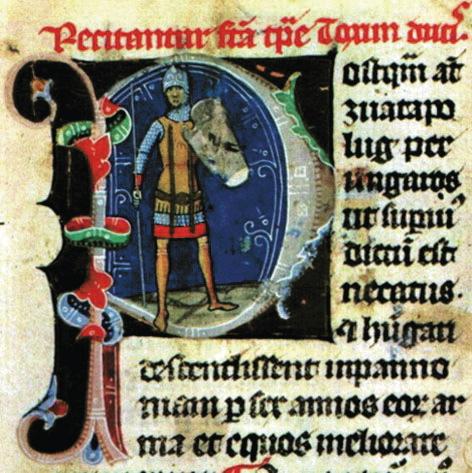 Recitantur fc̄a tp̄e Toxun ducꝭ
Postqm̄ at̄
zuatapo
lug per
ungaros
ut supiuˢ
dictū est
necatus.
⁊ hūgari
descendissent in panno
niam p sex annos eoꝝ ar
ma et equos meliorare